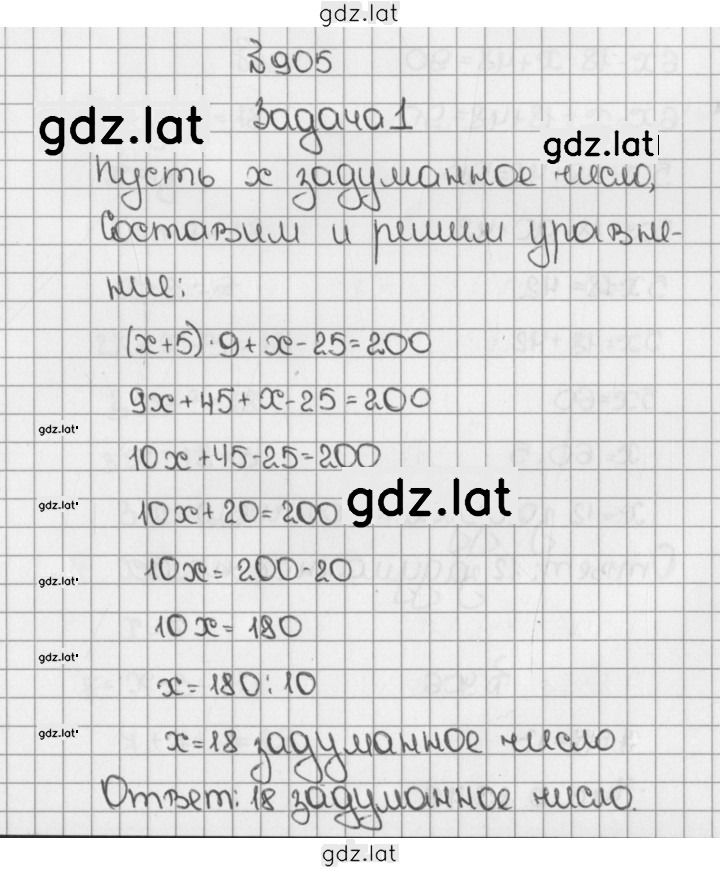 gdz.lat
№905
gdz.lat
Задача 1
gdz.lat
Пусть x задуманное число,
Составим и решим уравне-
ние:
(x+5)·9+x-25=200
9x+45+x-25=200
gdz.lat
10x+45-25=200
gdz.lat
10x+20=200
gdz.lat
10x=200-20
gdz.lat
10x=180
gdz.lat
x=180:10
gdz.lat
x=18 задуманное число
Ответ: 18 задуманное число.
gdz.lat